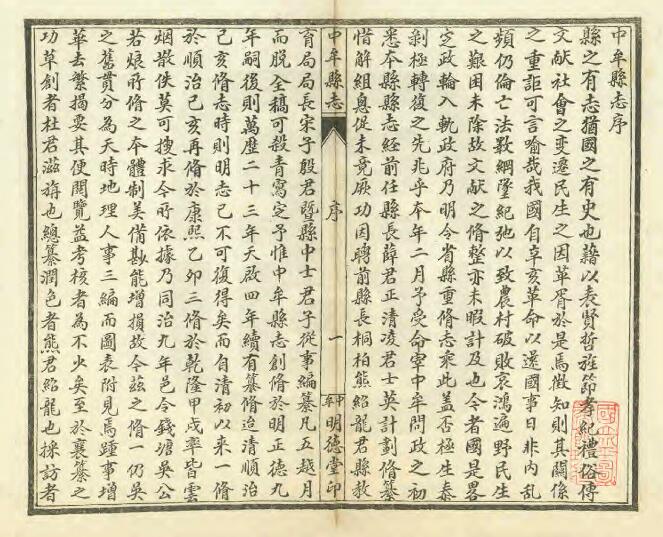 中牟縣志序
縣之有志猶國之有史也藉以表賢哲旌節孝紀禮俗傳
文献社會之变遷民生之因革胥於是焉徵知則其關係
之重詎可言喻哉我國自辛亥革命以還國事日非内乱
頻仍倫亡法斁綱墜紀弛以致農村破敗哀鴻遍野民生
之艱困未除故文献之脩整亦未暇計及也今者國是畧
定政輪入軌政府乃明令省縣重脩志乘此盖否極生泰
剝極轉復之先兆乎本年二月予受命宰中牟問政之初
悉本縣縣志經前任縣長薛君正清凌君士英計劃脩纂
惜解組息促未竟厥功因聘前縣長桐柏熊紹龍君縣教
中牟縣志
序
一
中牟
明德堂印
育局局長宋子殷君暨縣中士君子從事編纂凡五越月
而脱全稿可殺青寫定予惟中牟縣志創脩於明正德九
年嗣後則萬歷二十三年天啟四年續有纂脩迨清順治
己亥脩志時則明志已不可復得矣而自清初以来一脩
於順治己亥再脩於康熙乙卯三脩於乾隆甲戌率皆雲
烟散佚莫可搜求今所依據乃同治九年邑令錢塘吴公
若烺所脩之本體制美備勘能增損故今兹之脩一仍吴
之舊貫分為天時地理人事三編而圖表附見焉踵事增
華去繁揭要其便閲覽益考核者為不少矣至於襄纂之
功草創者杜君滋旃也總纂潤色者熊君紹龍也採訪者